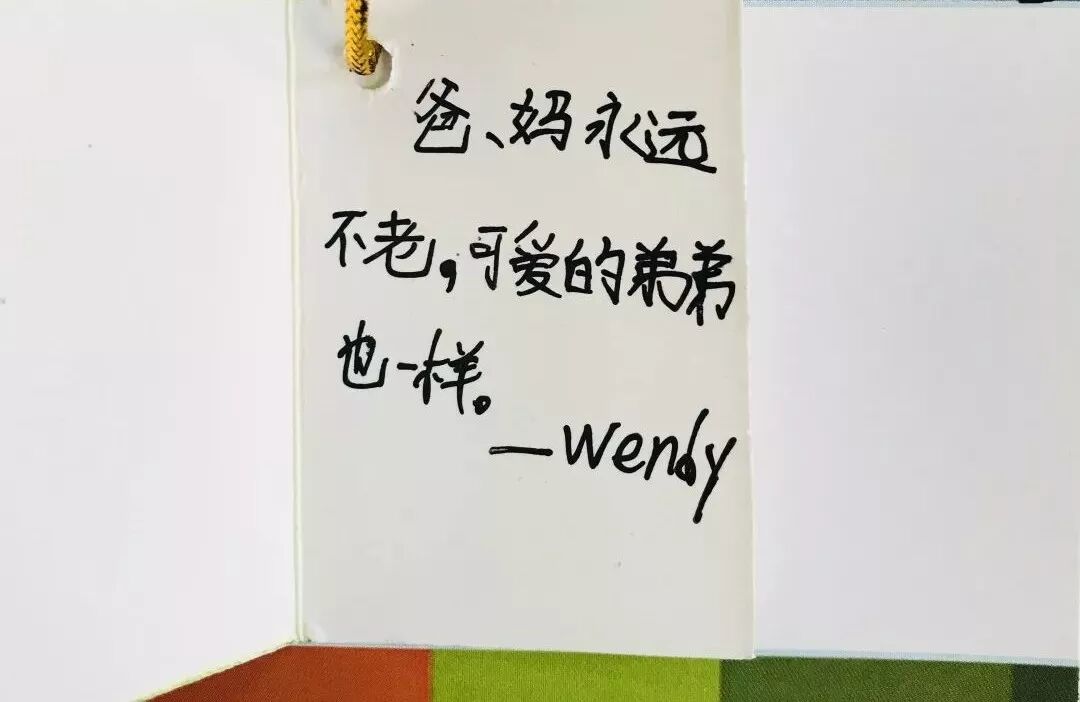 爸、妈永远
不老，可爱的弟弟
也一样。
—Wendy